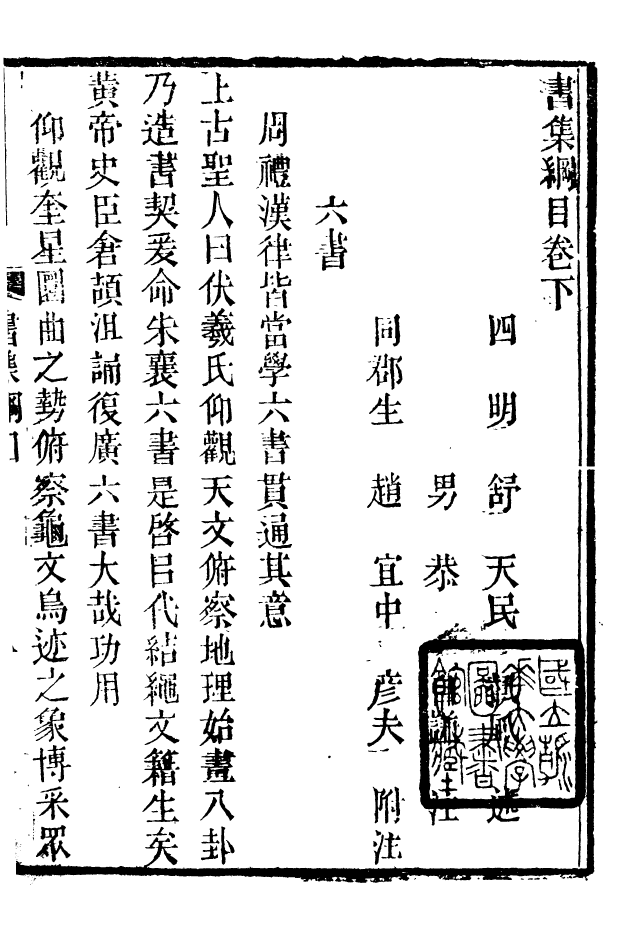 書集綱目卷下
四明舒天民述
男恭 自謙注
同郡生趙宜中彥夫附注
六書
周禮漢律皆當學六書貫通其意
上古聖人曰伏羲氏仰觀天文俯察地理始畫八卦
乃造書契爰命朱襄六書是啓㠯代結繩文籍生矣
黄帝史臣倉頡沮誦復廣六書大哉功用
仰觀奎星圜曲之勢俯察龜文鳥迹之象博采眾
書集綱目